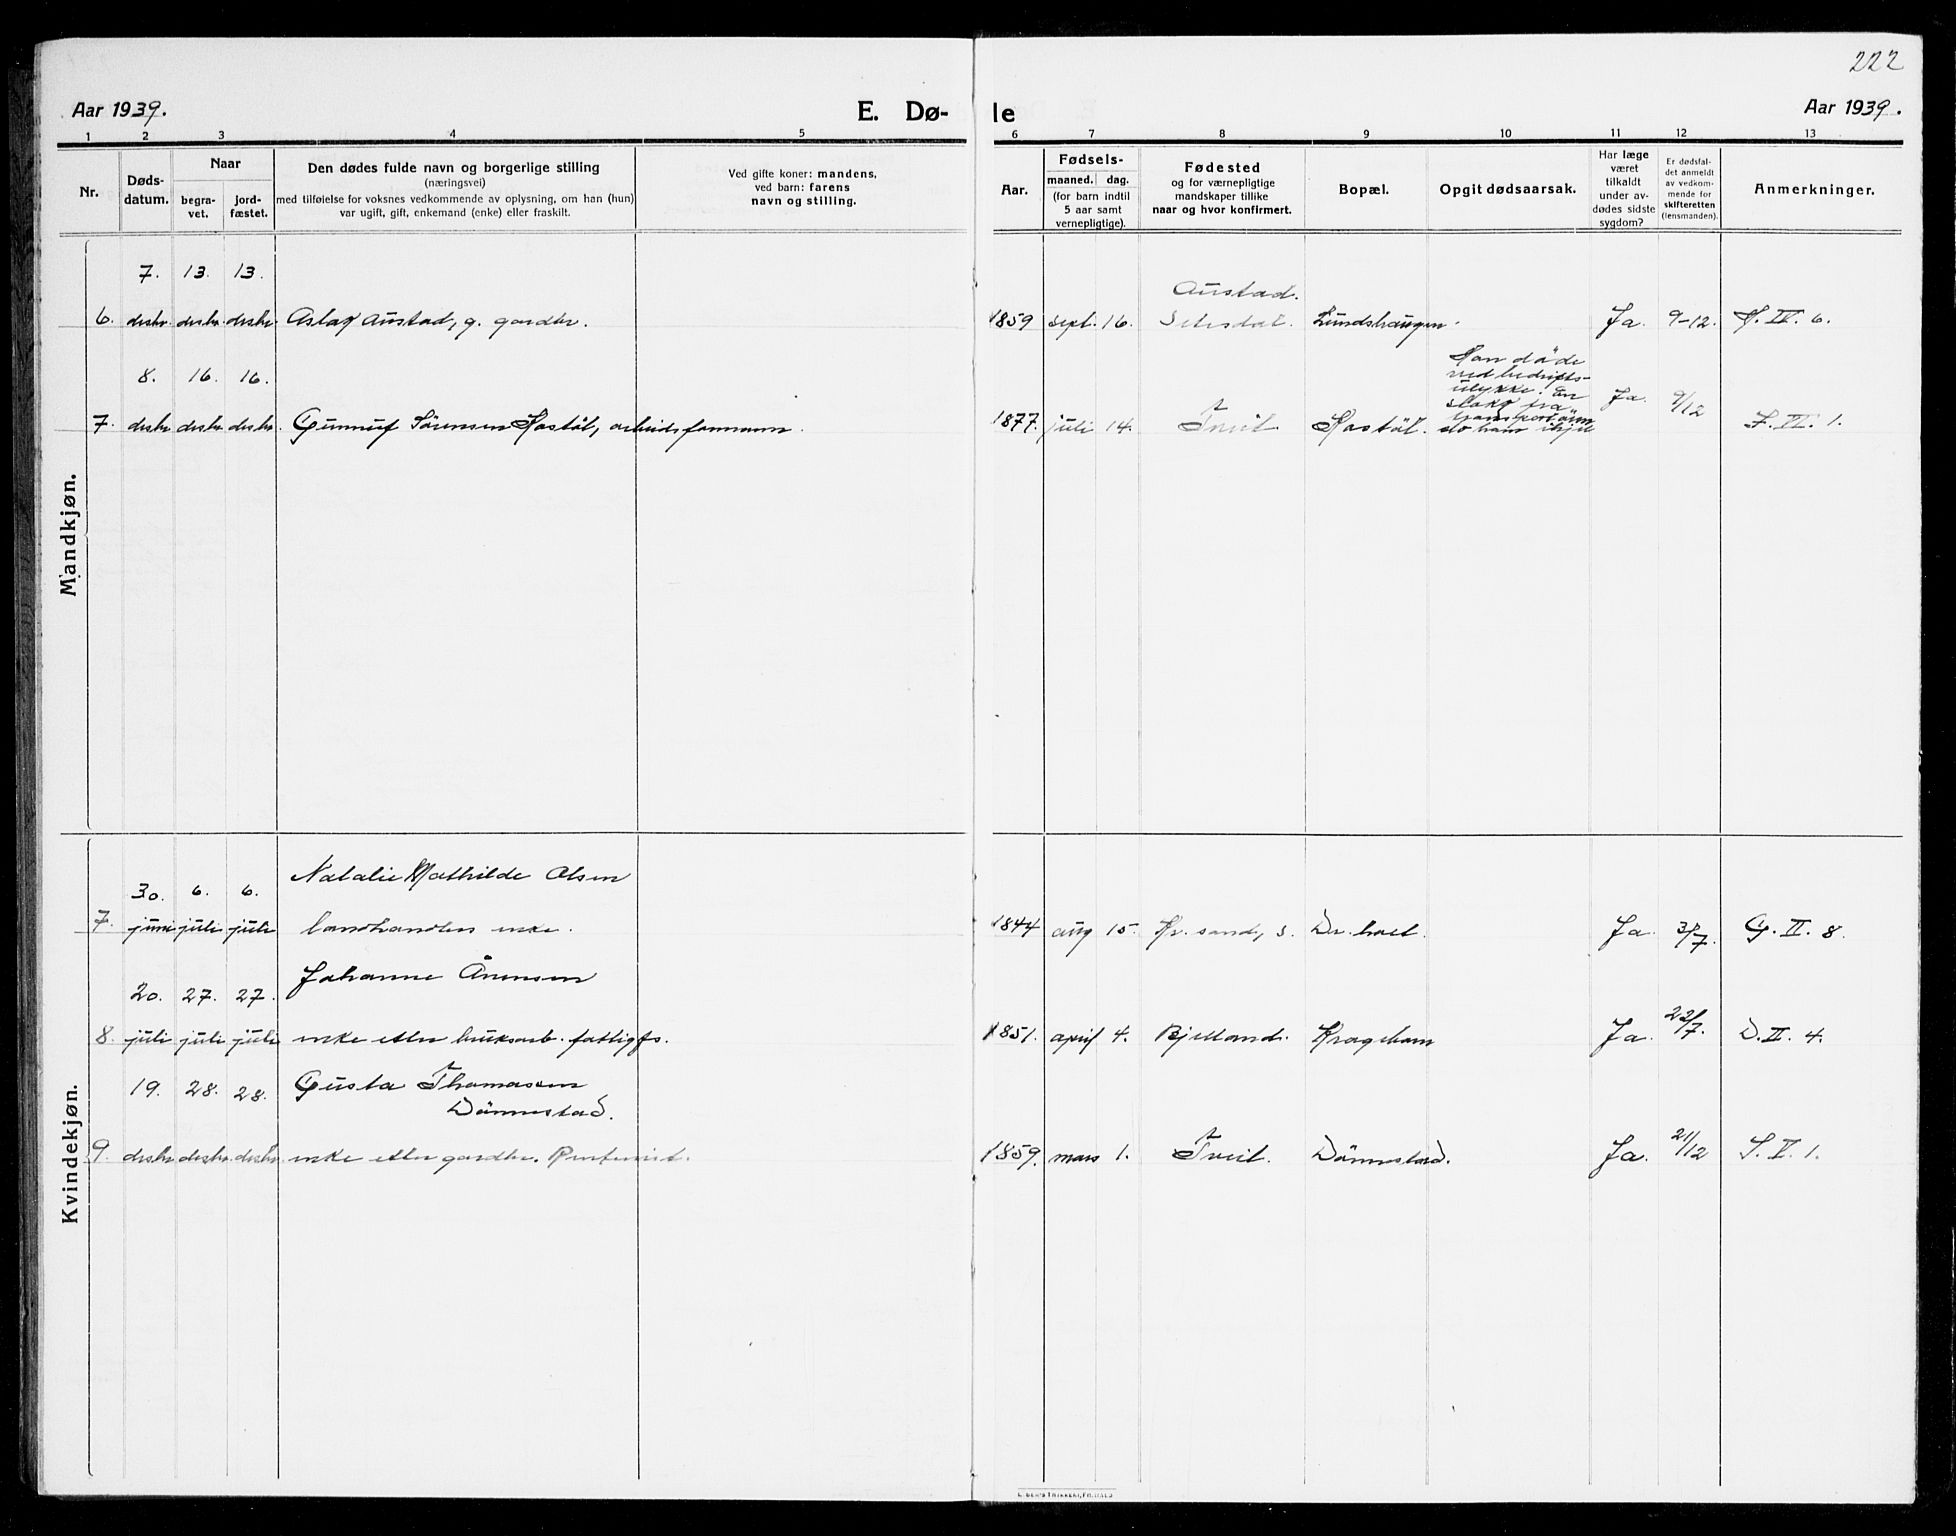 222
Aar 1939. E. Dø- le Aar 1939.
1 2 3 4 5 6 7 8 9 10 11 12 13
Nr.
Døds-
datum.
Naar
begra-
vet.
jord-
fæstet.
Den dødes fulde navn og borgerlige stilling
(næringsvei)
med tilføielse for voksnes vedkommende av oplysning, om han (hun)
var ugift, gift, enkemand (enke) eller fraskilt.
Ved gifte koner: mandens,
ved barn: farens
navn og stilling.
Aar.
Fødsels-
maaned. dag.
(for barn indtil
5 aar samt
vernepligtige).
Fødested
og for værnepligtige
mandskaper tillike
naar og hvor konfirmert.
Bopæl.
Opgit dødsaarsak.
Har læge
været
tilkaldt
under av-
dødes sidste
sygdom?
Er dødsfal-
det anmeldt
av vedkom-
mende for
skifteretten
(lensmanden).
Anmerkninger.
Mandkjøn.
7. 13. 13. Austad.
6. desbr. desbr. desbr. Aslag Austad, g. gardbr. 1859 sept. 16. Setesdal. Lundshaugen. Ja. 9-12. H. IV. 6.
8. 16. 16. Han døde
ved bedrifts-
ulykke. En
stakk fra
transportørn
slo ham ihjel
7. desbr. desbr. desbr. Gunnuf Sörensen Hastöl, arbeidsformann. 1877. juli 14. Tveit. Hastöl. Ja. 9/12 F. VI. 1.
Kvindekjøn.
30. 6. 6. Natalie Mathilde Olsen
7. juni juli juli landhandlers enke. 1844 aug 15. Kr. sand, s. Dr. hael. Ja. 3/7. G. II. 8.
20. 27. 27. Johanne Ånensen
8. juli juli juli enke etter bruksarb. fattigfs. 1851. april 4. Bjelland. Krageham Ja. 22/7. D. II. 4.
19. 28. 28. Gusta Thomassen
Dönnestad.
9. desbr desbr. desbr enke etter gardbr. Rentenist. 1859. mars 1. Tveit. Dönnestad. Ja. 21/12 S. V. 1.